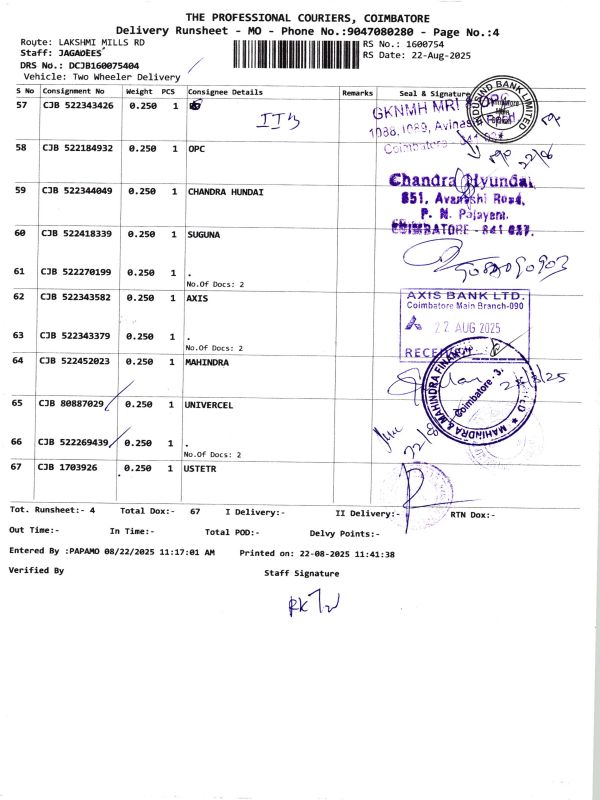 THE PROFESSIONAL COURIERS, COIMBATORE
Delivery Runsheet - MO - Phone No.:9047080280 - Page No.:4
Route: LAKSHMI MILLS RD
RS No.: 1600754
Staff: JAGADEES
RS Date: 22-Aug-2025
DRS No.: DCJB160075404
Vehicle: Two Wheeler Delivery
S No Consignment No Weight PCS Consignee Details Remarks Seal & Signature
57 CJB 522343426 0.250 1
GKNMH MRI
1088, 1089, Avinashi Road
Coimbatore
INDUSIND BANK LIMITED
58 CJB 522184932 0.250 1 OPC
22/08
59 CJB 522344049 0.250 1 CHANDRA HUNDAI
Chandra Hyundai,
851, Avanashi Road,
P. N. Palayam,
COIMBATORE - 641 037.
60 CJB 522418339 0.250 1 SUGUNA
61 CJB 522270199 0.250 1 .
No.Of Docs: 2
62 CJB 522343582 0.250 1 AXIS
AXIS BANK LTD.
Coimbatore Main Branch-090
22 AUG 2025
63 CJB 522343379 0.250 1 .
No.Of Docs: 2
64 CJB 522452023 0.250 1 MAHINDRA
Coimbatore - 3.
65 CJB 80887029 0.250 1 UNIVERCEL
66 CJB 522269439 0.250 1 .
No.Of Docs: 2
67 CJB 1703926 0.250 1 USTETR
Tot. Runsheet:- 4 Total Dox:- 67 I Delivery:- II Delivery:- RTN Dox:-
Out Time:- In Time:- Total POD:- Delvy Points:-
Entered By :PAPAMO 08/22/2025 11:17:01 AM Printed on: 22-08-2025 11:41:38
Verified By Staff Signature